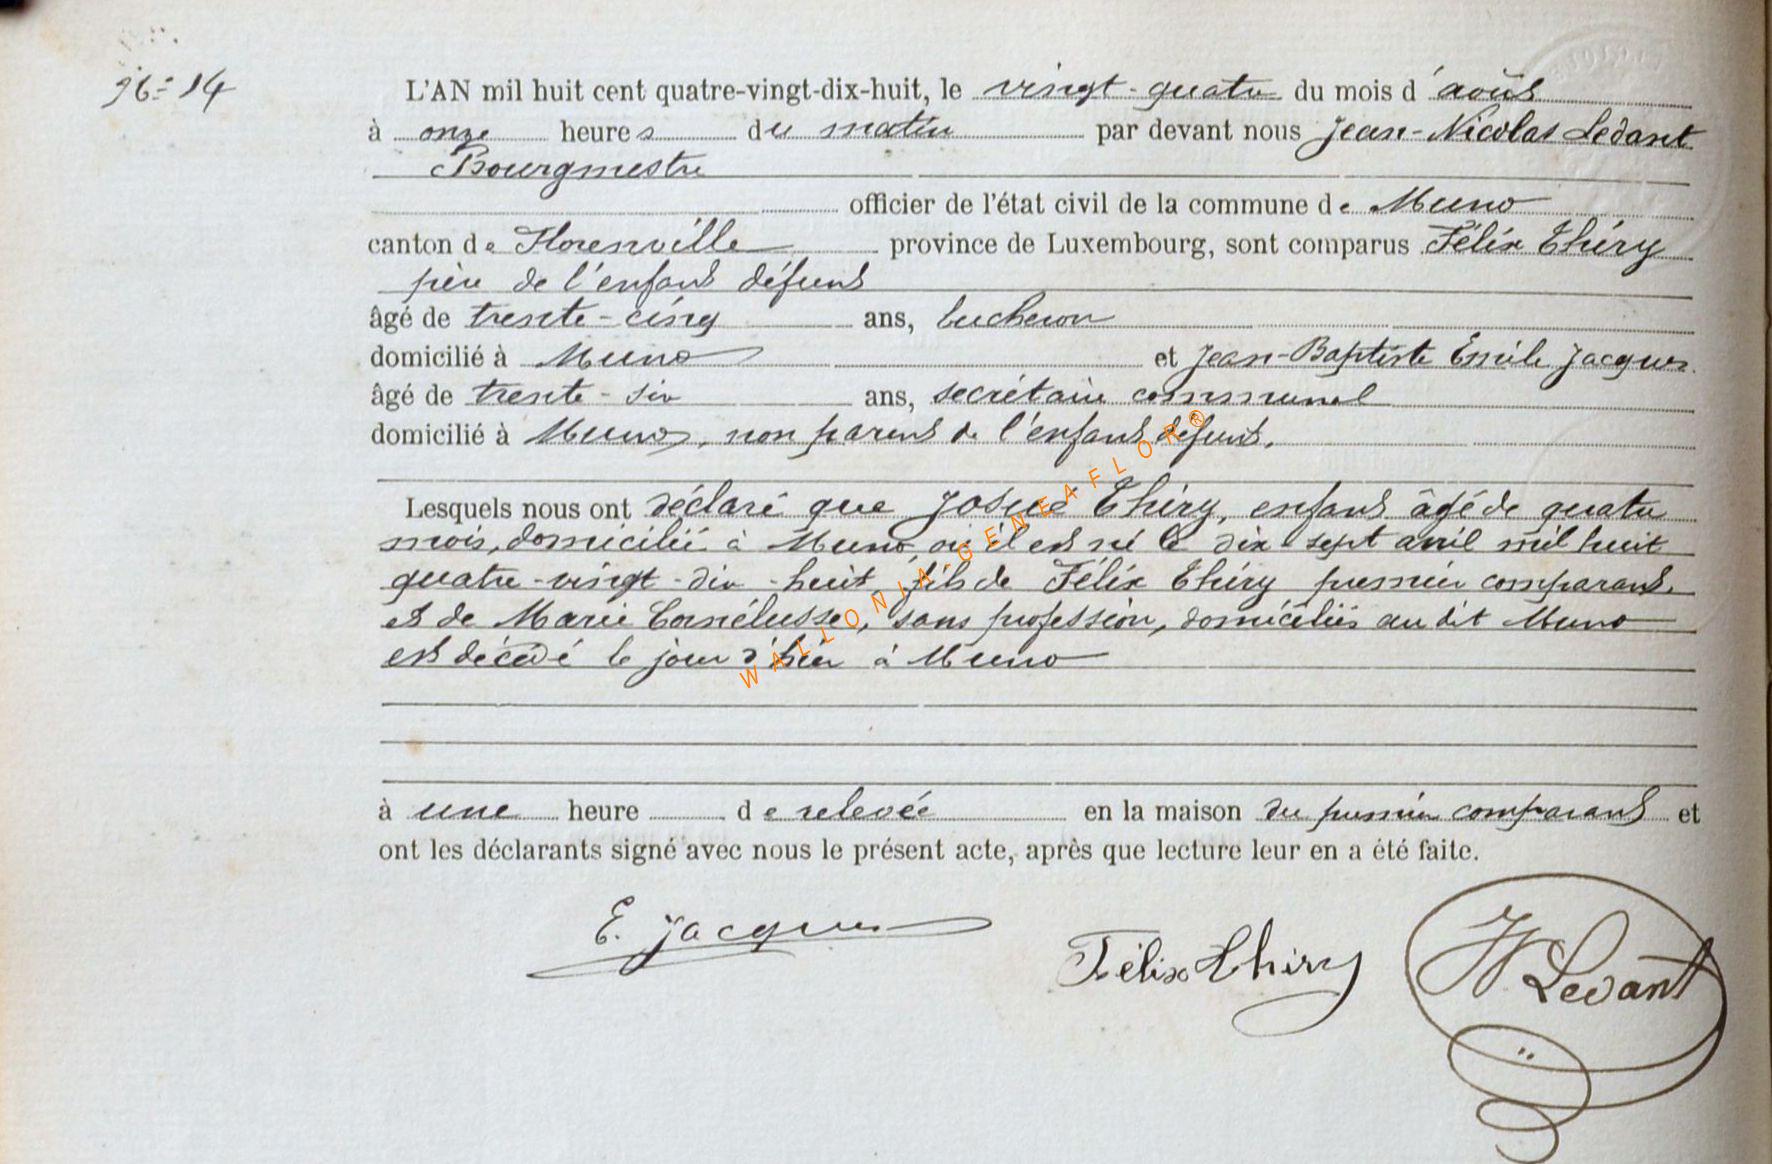 N°: 14
L'AN mil huit cent quatre-vingt-dix-huit, le vingt-quatre du mois d'août
à onze heures du matin par devant nous Jean-Nicolas Ledant
Bourgmestre
officier de l'état civil de la commune de Muno
canton de Florenville province de Luxembourg, sont comparus Félix Thiry
père de l'enfant défunt
âgé de trente-cinq ans, bucheron
domicilié à Muno et Jean-Baptiste Emile Jacques
âgé de trente-six ans, secrétaire communal
domicilié à Muno, non parent de l'enfant défunt.
Lesquels nous ont déclaré que Josué Thiry, enfant âgé de quatre
mois, domicilié à Muno, où il est né le dix-sept avril mil huit
quatre-vingt-dix-huit, fils de Félix Thiry premier comparant
et de Marie Cornélusse, sans profession, domiciliés au dit Muno
est décédé le jour d'hier à Muno
à une heure de relevée en la maison du premier comparant et
ont les déclarants signé avec nous le présent acte, après que lecture leur en a été faite.
E. Jacques
Félix Thiry
JN. Ledant
WALLONIA-GENEAFLOR®